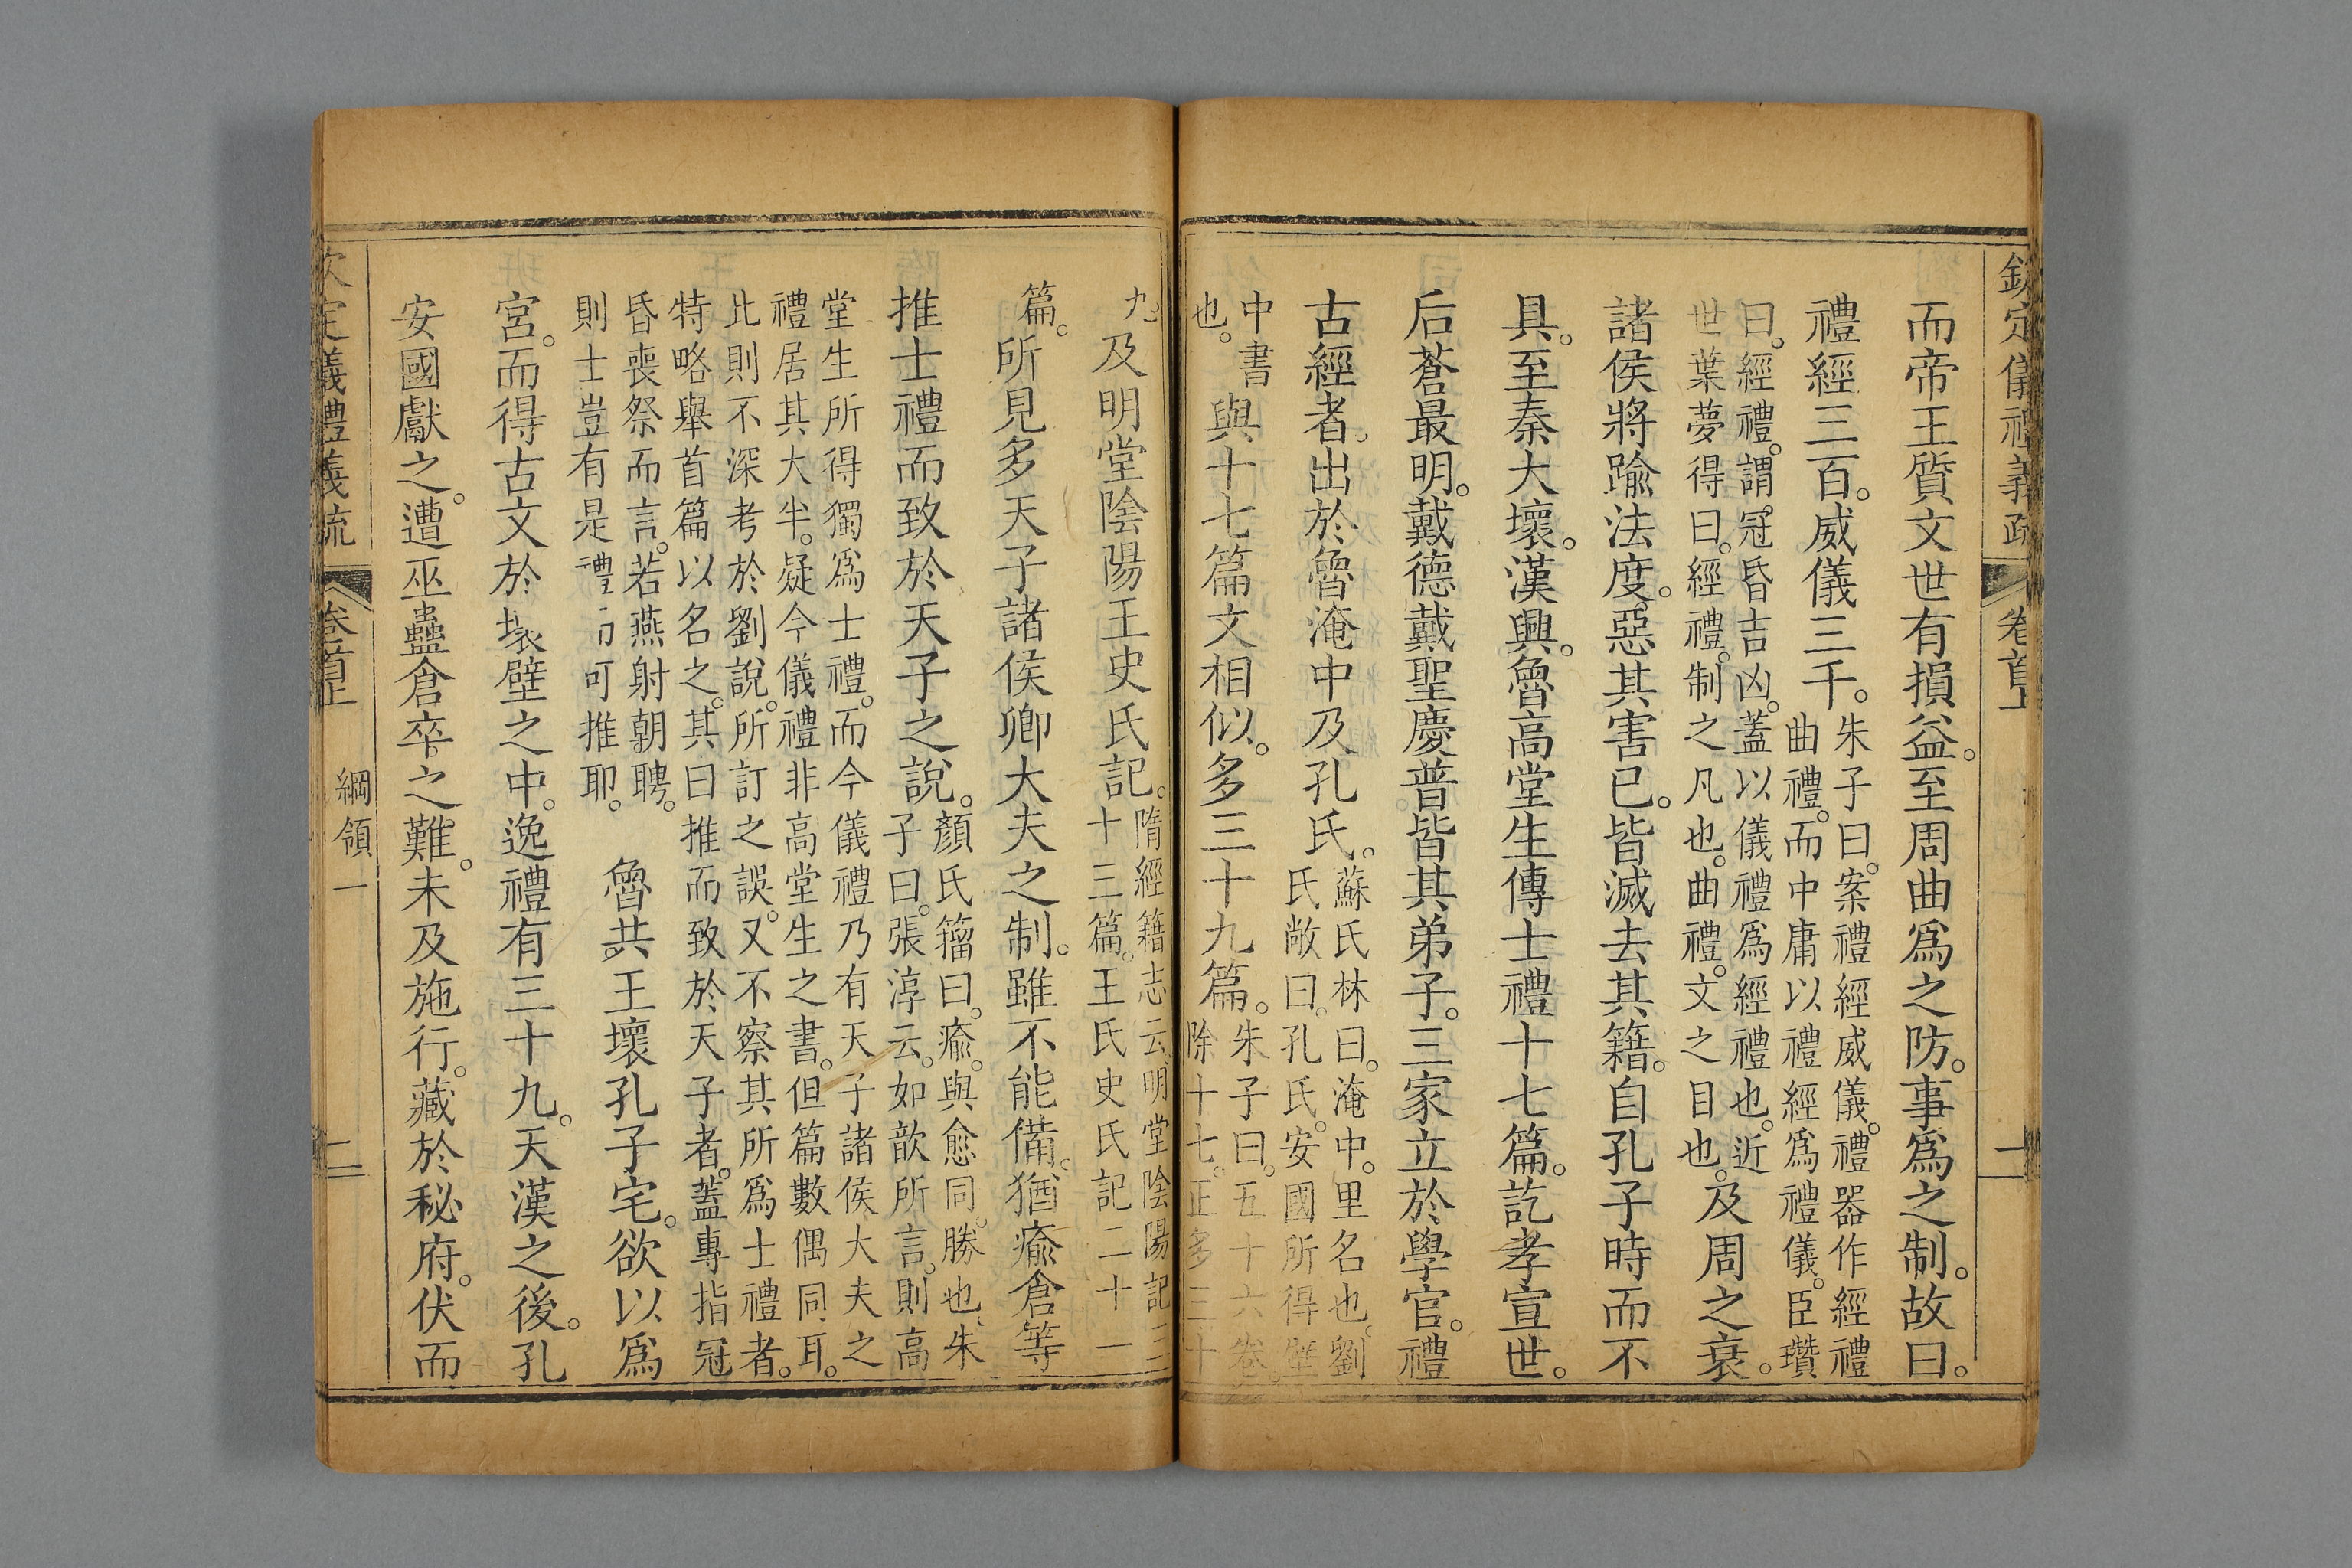 欽定儀禮義疏 卷首上
而帝王質文世有損益。至周曲爲之防。事爲之制。故曰。
禮經三百。威儀三千。
朱子曰。案禮經威儀。禮器作經禮
曲禮。而中庸以禮經爲禮儀。臣瓚
曰。經禮。謂冠昏吉凶。蓋以儀禮爲經禮也。近
世葉夢得曰。經禮。制之凡也。曲禮。文之目也。
及周之衰。
諸侯將踰法度。惡其害己。皆滅去其籍。自孔子時而不
具。至秦大壞。漢興。魯高堂生傳士禮十七篇。訖孝宣世。
后蒼最明。戴德戴聖慶普皆其弟子。三家立於學官。禮
古經者。出於魯淹中及孔氏。
蘇氏林曰。淹中。里名也。劉
氏敞曰。孔氏。安國所得壁
中書
也。
與十七篇文相似。多三十九篇。
朱子曰。五十六卷。
除十七。正多三十
九
及明堂陰陽王史氏記。
隋經籍志云。明堂陰陽記三
十三篇。王氏史氏記二十一
篇。
所見多天子諸侯卿大夫之制。雖不能備。猶瘉倉等
推士禮而致於天子之說。
顏氏籀曰。瘉。與愈同。勝也。朱
子曰。張淳云。如歆所言。則高
堂生所得獨爲士禮。而今儀禮乃有天子諸侯大夫之
禮居其大半。疑今儀禮非高堂生之書。但篇數偶同耳。
此則不深考於劉說。所訂之誤。又不察其所爲士禮者。
特略舉首篇以名之。其曰推而致於天子者。蓋專指冠
昏喪祭而言。若燕射朝聘。
則士豈有是禮而可推耶。
魯共王壞孔子宅。欲以爲
宮。而得古文於壞壁之中。逸禮有三十九。天漢之後。孔
安國獻之。遭巫蠱倉卒之難。未及施行。藏於秘府。伏而
欽定儀禮義疏 卷首上 綱領一 二